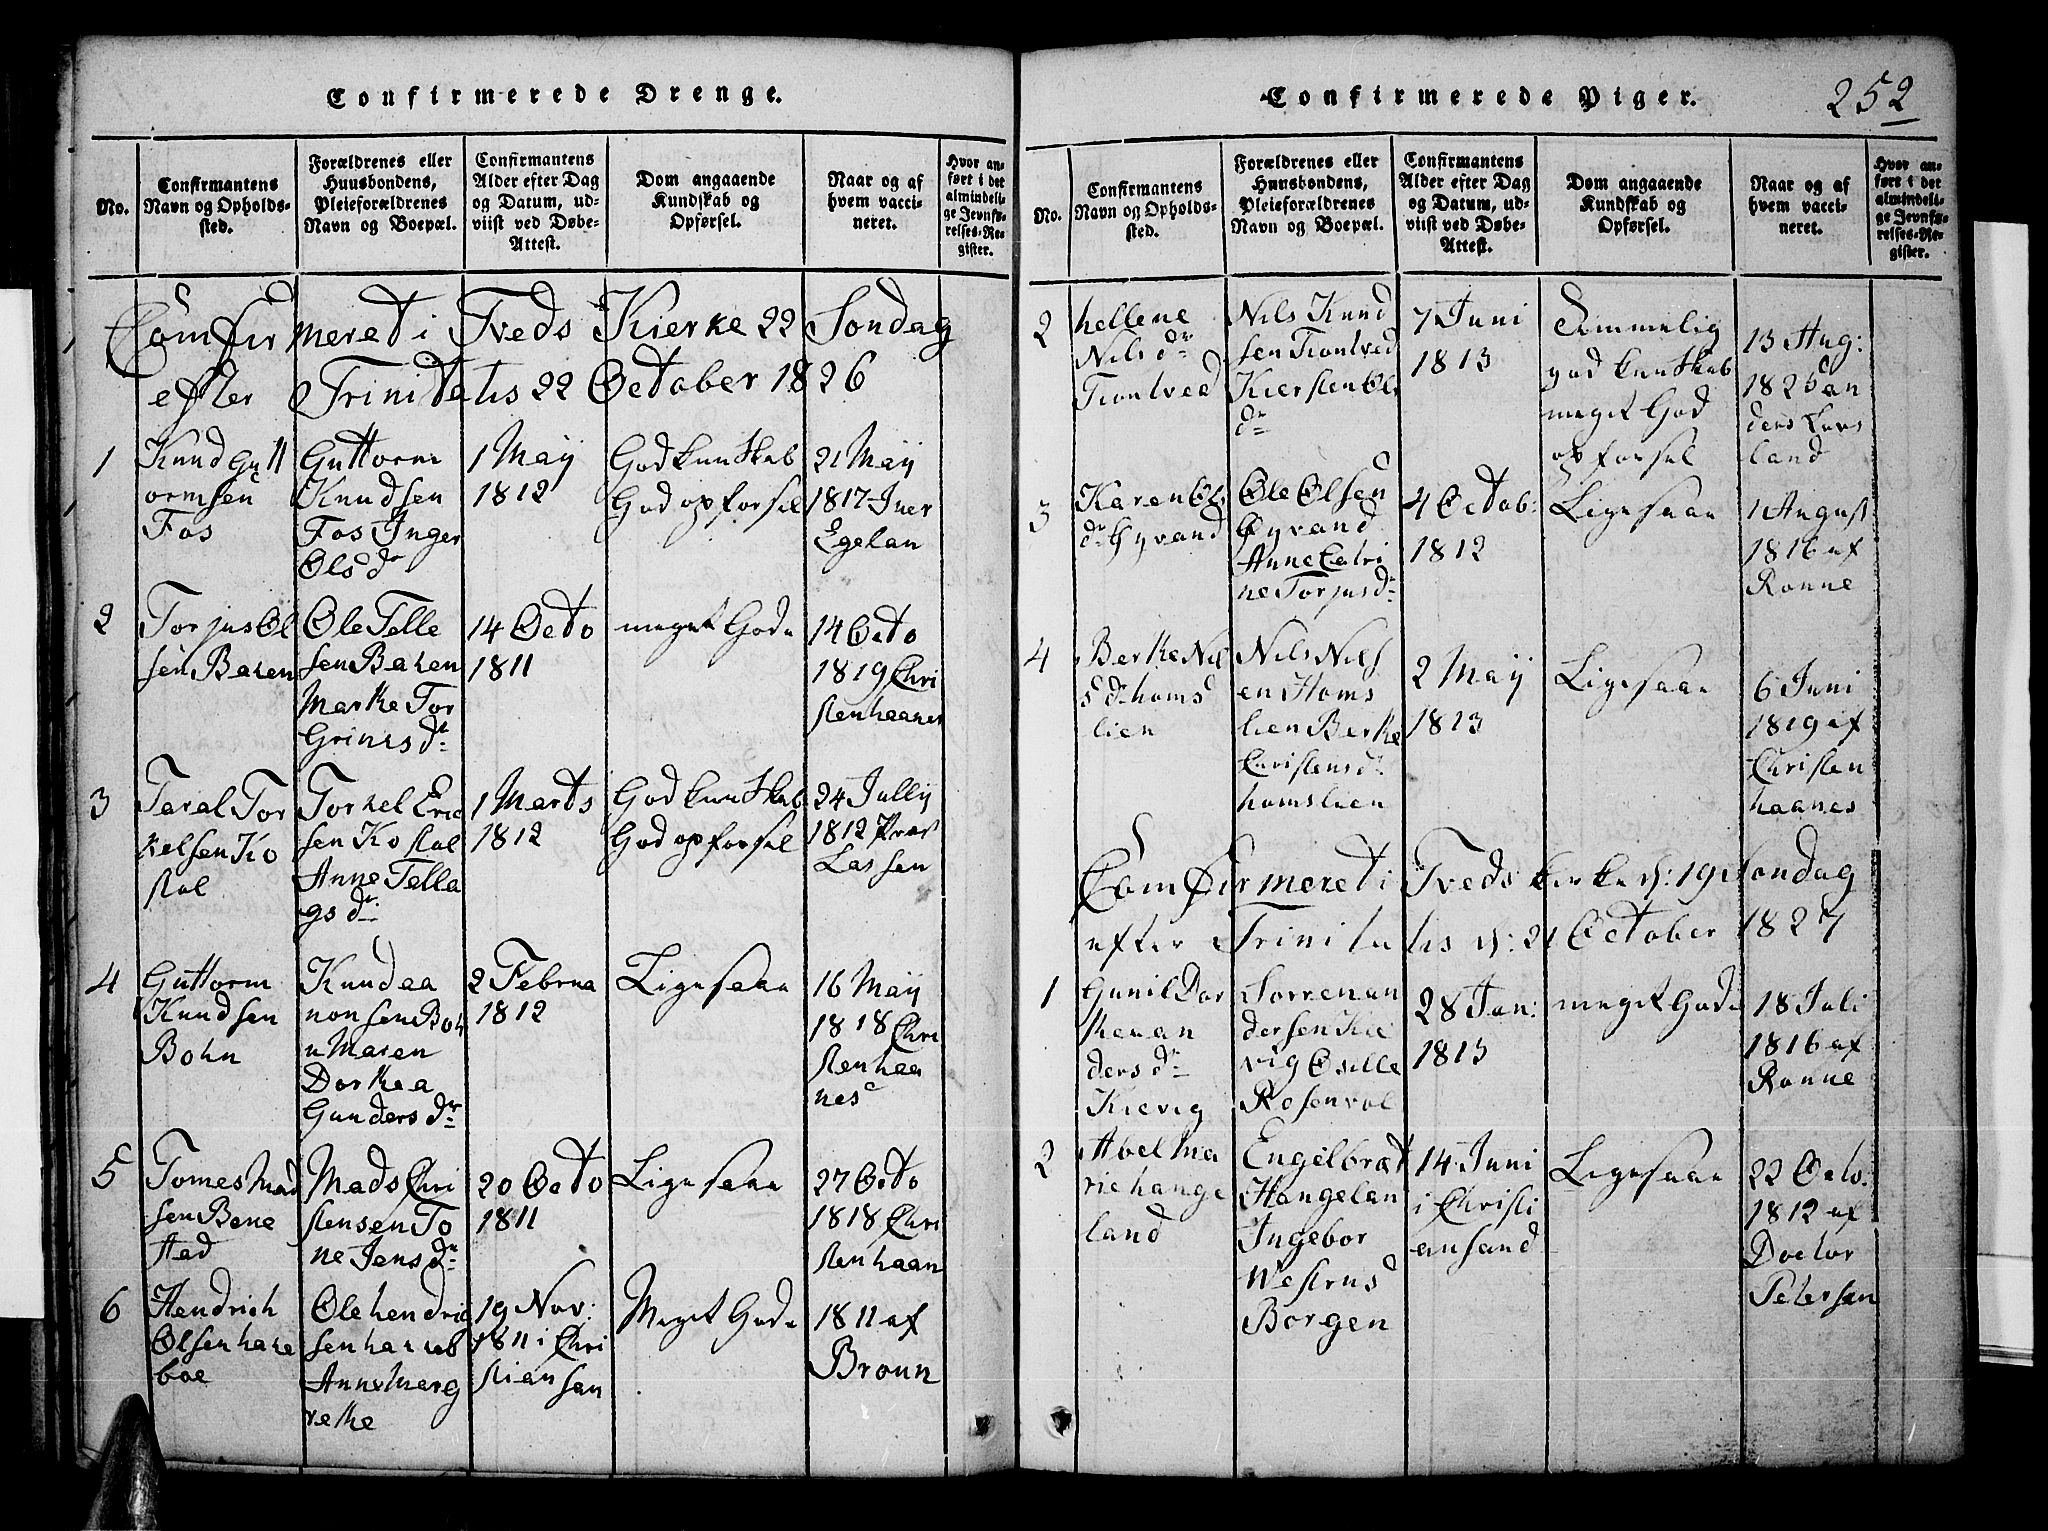 Confirmerede Drenge.
No.
Confirmantens
Navn og Opholds-
sted.
Forældrenes eller
Huusbondens,
Pleieforældrenes
Navn og Boepæl.
Confirmantens
Alder efter Dag
og Datum, ud-
viist ved Døbe-
Attest.
Dom angaaende
Kundskab og
Opførsel.
Naar og af
hvem vacci-
neret.
Hvor an-
ført i det
almindeli-
ge Jevnfø-
relses-Re-
gister.
Comfirmeret i Tveds Kierke 22 Sondag
efter Trinitatis 22 October 1826
1
Knud Gutt
ormsen
Fos
Guttorm
Knudsen
Fos Inger
Olsdr
1 Maij
1812
God kunskab
God opforsel
21 Maij
1817 Iver
Egelan
2
Torjus Ol
sen Baren
Ole Telle
sen Baren
Marthe Tor
Grimsdr
14 Octo
1811
meget Gode
14 Octo
1819 Chri
stenhaanes
3
Taral Tor
kelsen Ko
stol
Torkel Eric
sen Kostol
Anne Tella
gsdr
1 Marts
1812
God kunskab
God opforsel
24 Jullij
1812
Lassen
4
Guttorm
Knudsen
Bohn
Knud aa
nonsen Boh
n Maren
Dorthea
Gundersdr
2 Februa
1812
Ligesaa
16 Maij
1818 Chri
stenhaa
nes
5
Tomes Mad
sen Bene
stad
Mads Chri
stensen To
ne Jensdr
20 Octo
1811
Ligesaa
27 Octo
1818 Chri
stenhaan
6
Hendrich
Olsen hane
boe
Ole hendric
sen haneb
Anne Marg
rethe
19 Nov:
1811 i Chri
stiansan
Meget Gode
1811 af
Broun
Confirmerede Piger.
252
No.
Confirmantens
Navn og Opholds-
sted.
Forældrenes eller
Huusbondens,
Pleieforældrenes
Navn og Boepæl.
Confirmantens
Alder efter Dag
og Datum, ud-
viist ved Døbe-
Attest.
Dom angaaende
Kundskab og
Opførsel.
Naar og af
hvem vacci-
neret.
Hvor an-
ført i det
almindeli-
ge Jevnfø-
relses-Re-
gister.
2
hellene
Nilsdr
Trontved
Nils Knud
sen Trontved
Kiersten Ols
dr
7 Juni
1813
Temmelig
god kunskab
meget God
opforsel
13 Aug:
land
3
Karen Ols
dr Gyvand
Ole Olsen
Gyvand
Anne Catri
ne Torjusdr
4 Octob:
1812
Ligesaa
1 August
1816 af
Ronne
4
Berthe Nil
sdr homs
lien
Nils Nils
en Homs
lien Berthe
Christensdr
homslien
2 Maij
1813
Ligesaa
6 Juni
1819 af
Christen
haanes
Comfirmeret i Tveds kirke d: 19 Sondag
efter Trinitatis d: 21 October 1827
1
Gunil Dor
thea an
dersdr
Kievig
Sorren an
dersen Kie
vig Osille
Rosenvol
28 Jan:
1813
meget Gode
18 Juli
1816 af
Ronne
2
Abel Ma
rie hange
land
Engelbræt
Hangelan
Ingebor
Westrus
Borgen
14 Juni
i Christi
ansand
Ligesaa
22 Octo:
1812 af
Doctor
Petersen